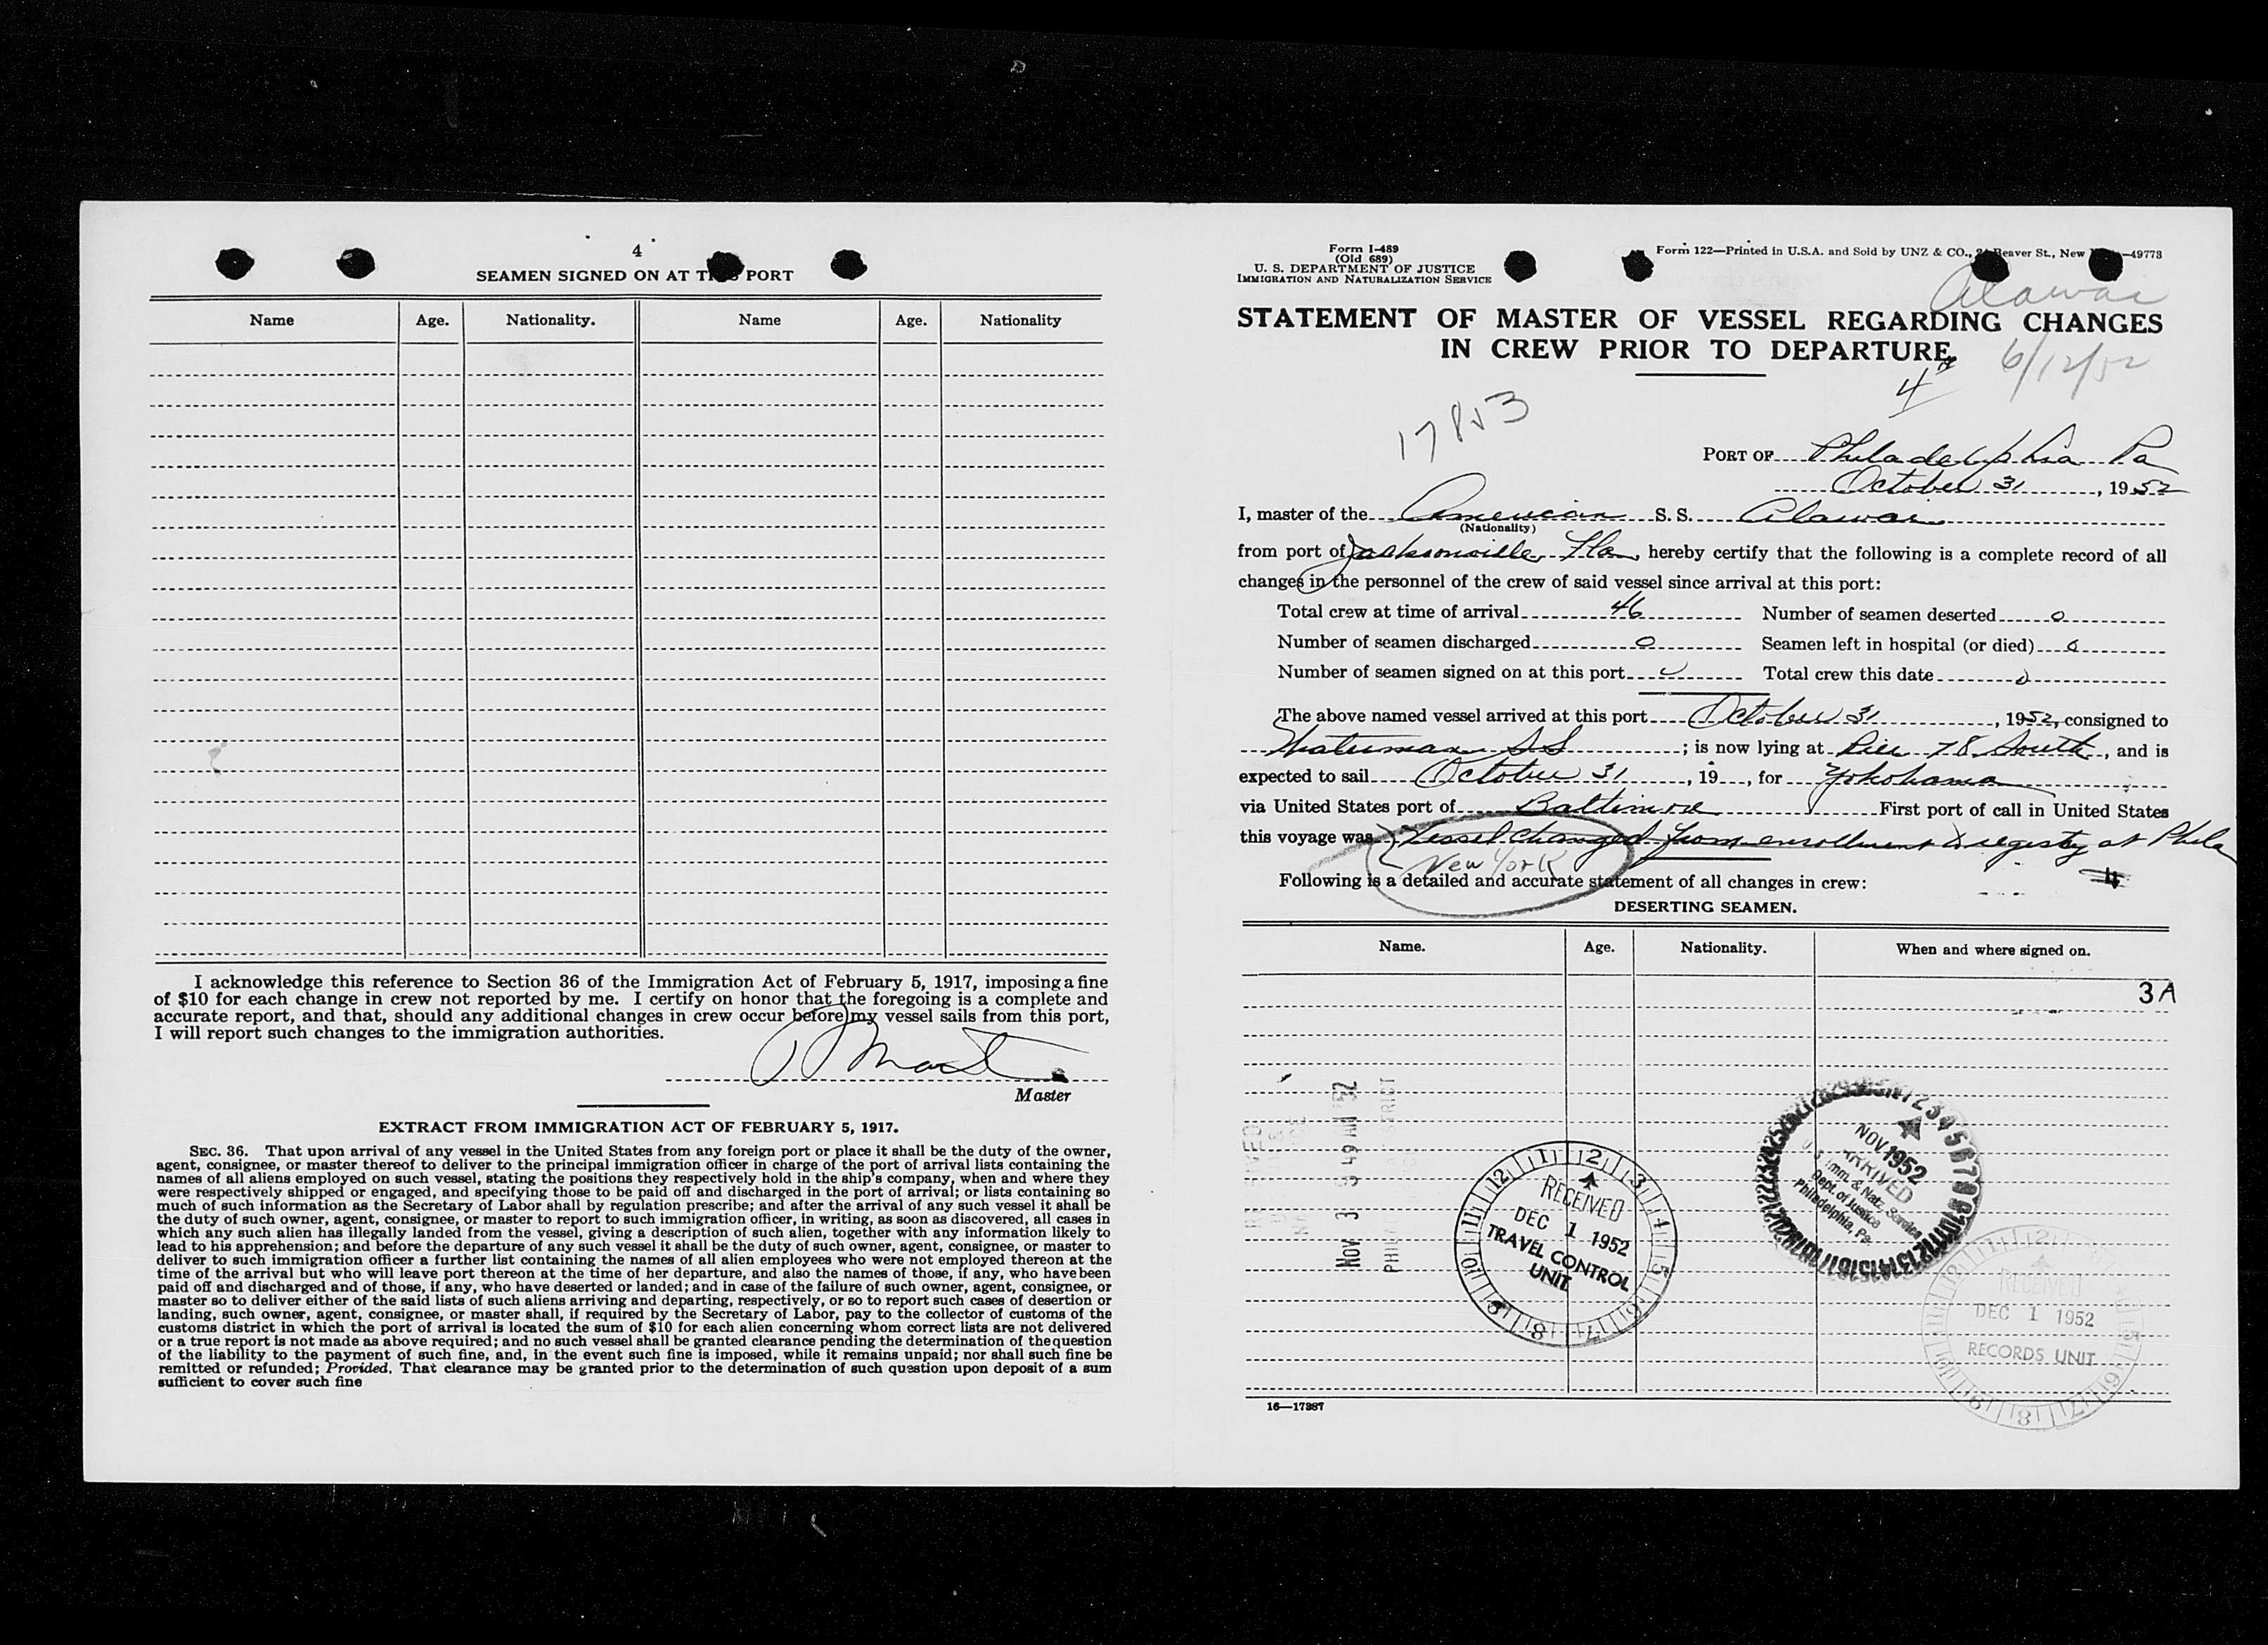 4
SEAMEN SIGNED ON AT THIS PORT
Name Age. Nationality. Name Age. Nationality
I acknowledge this reference to Section 36 of the Immigration Act of February 5, 1917, imposing a fine
of $10 for each change in crew not reported by me. I certify on honor that the foregoing is a complete and
accurate report, and that, should any additional changes in crew occur before my vessel sails from this port,
I will report such changes to the immigration authorities.
Master
EXTRACT FROM IMMIGRATION ACT OF FEBRUARY 5, 1917.
SEC. 36. That upon arrival of any vessel in the United States from any foreign port or place it shall be the duty of the owner,
agent, consignee, or master thereof to deliver to the principal immigration officer in charge of the port of arrival lists containing the
names of all aliens employed on such vessel, stating the positions they respectively hold in the ship's company, when and where they
were respectively shipped or engaged, and specifying those to be paid off and discharged in the port of arrival; or lists containing so
much of such information as the Secretary of Labor shall by regulation prescribe; and after the arrival of any such vessel it shall be
the duty of such owner, agent, consignee, or master to report to such immigration officer, in writing, as soon as discovered, all cases in
which any such alien has illegally landed from the vessel, giving a description of such alien, together with any information likely to
lead to his apprehension; and before the departure of any such vessel it shall be the duty of such owner, agent, consignee, or master to
deliver to such immigration officer a further list containing the names of all alien employees who were not employed thereon at the
time of the arrival but who will leave port thereon at the time of her departure, and also the names of those, if any, who have been
paid off and discharged and of those, if any, who have deserted or landed; and in case of the failure of such owner, agent, consignee, or
master so to deliver either of the said lists of such aliens arriving and departing, respectively, or so to report such cases of desertion or
landing, such owner, agent, consignee, or master shall, if required by the Secretary of Labor, pay to the collector of customs of the
customs district in which the port of arrival is located the sum of $10 for each alien concerning whom correct lists are not delivered
or a true report is not made as above required; and no such vessel shall be granted clearance pending the determination of the question
of the liability to the payment of such fine, and, in the event such fine is imposed, while it remains unpaid; nor shall such fine be
remitted or refunded; Provided, That clearance may be granted prior to the determination of such question upon deposit of a sum
sufficient to cover such fine
Form I-489
(Old 689)
U. S. DEPARTMENT OF JUSTICE
IMMIGRATION AND NATURALIZATION SERVICE
Form 122—Printed in U.S.A. and Sold by UNZ & CO., Beaver St., New —49773
Alawai
STATEMENT OF MASTER OF VESSEL REGARDING CHANGES
IN CREW PRIOR TO DEPARTURE
6/12/52
4
17853
PORT OF Philadelphia Pa
October 31, 1952
I, master of the American S. S. Alawai
(Nationality)
from port of Jacksonville Fla, hereby certify that the following is a complete record of all
changes in the personnel of the crew of said vessel since arrival at this port:
Total crew at time of arrival 46 Number of seamen deserted 0
Number of seamen discharged 0 Seamen left in hospital (or died) 0
Number of seamen signed on at this port 0 Total crew this date 0
The above named vessel arrived at this port October 31, 1952, consigned to
Waterman SS; is now lying at Pier 78 South, and is
expected to sail October 31, 19, for Yokohama
via United States port of Baltimore First port of call in United States
this voyage was Vessel changed from enrollment to registry at Phila
New York
Following is a detailed and accurate statement of all changes in crew:
DESERTING SEAMEN.
Name. Age. Nationality. When and where signed on.
3A
NOV 3 9 49 AM '52
RECEIVED
DEC 1 1952
TRAVEL CONTROL
UNIT
NOV 1952
ARRIVED
U. S. Imm. & Natz. Service
Dept. of Justice
Philadelphia, Pa.
RECEIVED
DEC 1 1952
RECORDS UNIT
16—17287